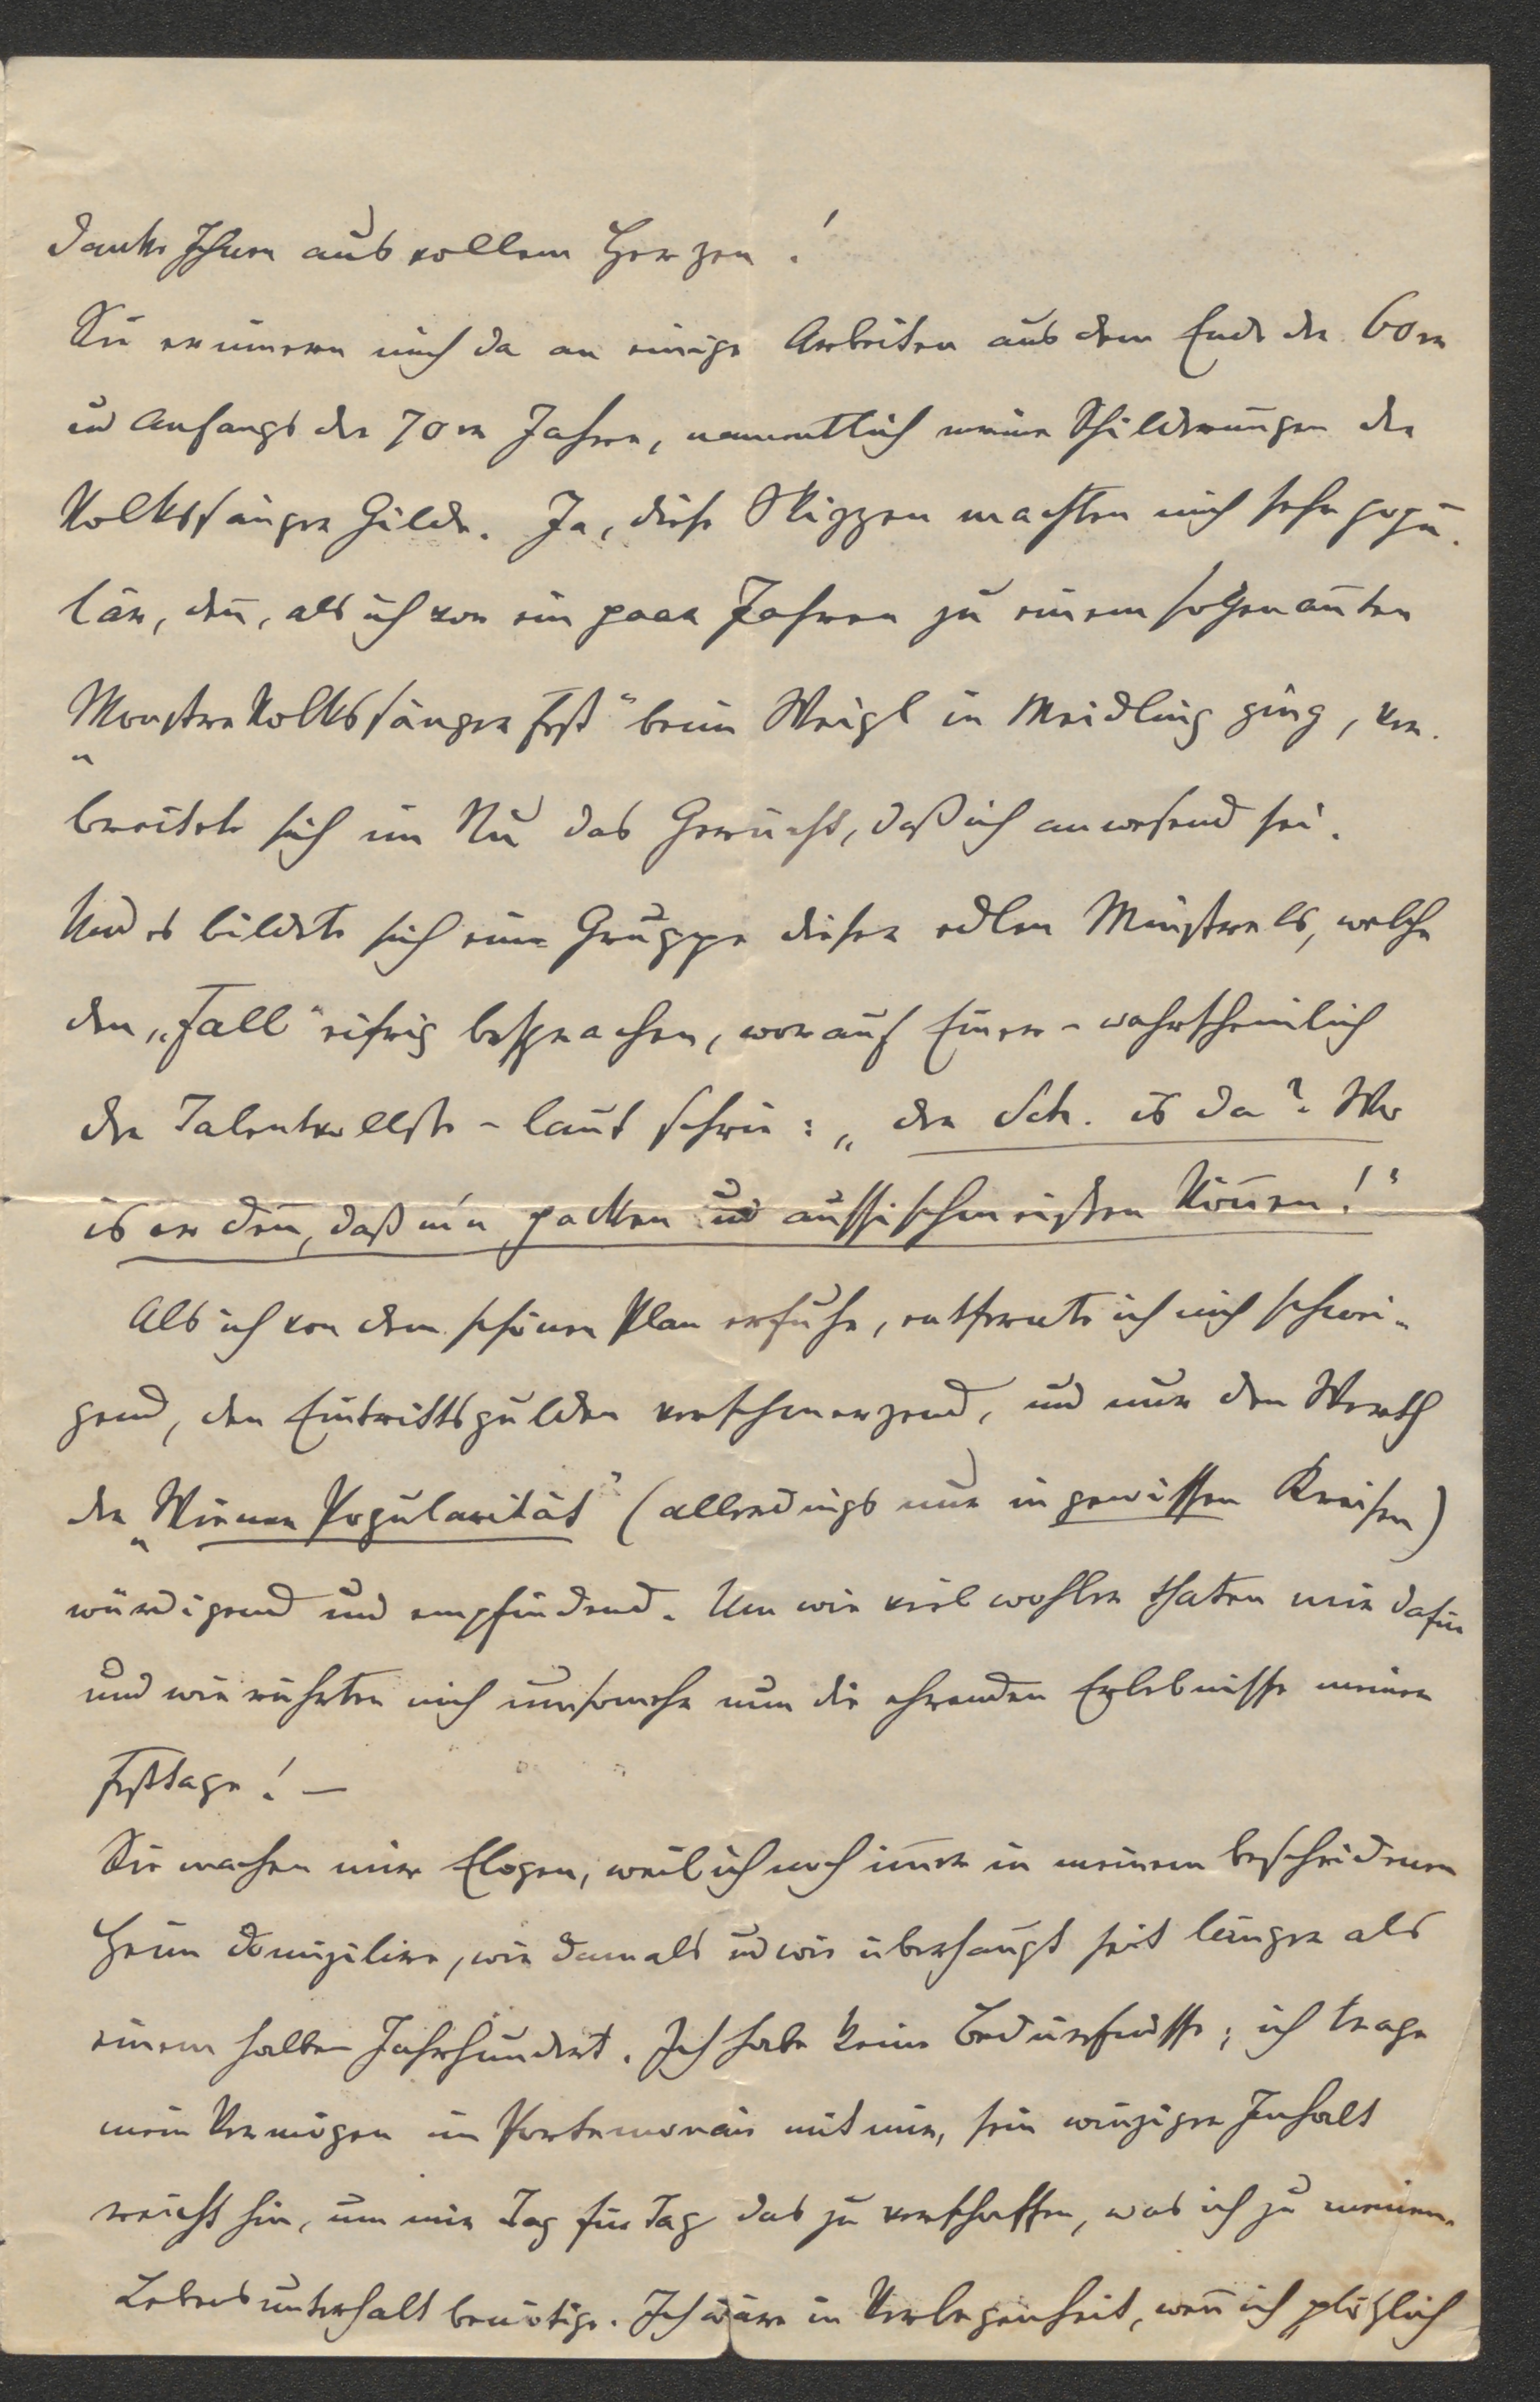 danke Ihnen aus vollem Herzen!
Sie erinnern mich da an einige Arbeiten aus dem Ende der 60er
u Anfangs der 70er Jahre, namentlich meine Schilderungen der
Volkssänger Gilde. Ja, diese Skizzen machten mich sehr popu-
lär, den̄, als ich vor ein paar Jahren zu einem sogenan̄ten
„Monstre Volkssänger Fest“ beim Weigl in Meidling ging, ver-
breitete sich im Nu das Gerücht, daß ich anwesend sei.
Und es bildete sich eine Gruppe dieser edlen Minstrels, welche
den „Fall“ eifrig besprachen, worauf Einer – wahrscheinlich
der Talentvollste – laut schrie: „der Sch. is da? Wo
is er den̄, daß m'n packen und aussischmeißen kön̄en!“
Als ich von dem schönen Plan erfuhr, entfernte ich mich schwei-
gend, den Eintrittsgulden verschmerzend, und nur den Werth
der „Wiener Popularität“ (allerdings nur in gewissen Kreisen)
würdigend und empfindend. Um wie viel wohler thaten mir dafür
und wie rührten mich umsomehr nun die ehrenden Erlebnisse meiner
Festtage! –
Sie machen mir Elogen, weil ich noch im̄er in meinem bescheidenen
Heim domizilire, wie damals u wie überhaupt seit länger als
einem halben Jahrhundert. Ich habe keine Bedürfnisse; ich trage
mein Vermögen im Portemonaie mit mir, sein winziger Inhalt
reicht hin, um mir Tag für Tag das zu verschaffen, was ich zu meinem
Lebensunterhalt benötige. Ich wäre in Verlegenheit, wen̄ ich plötzlich